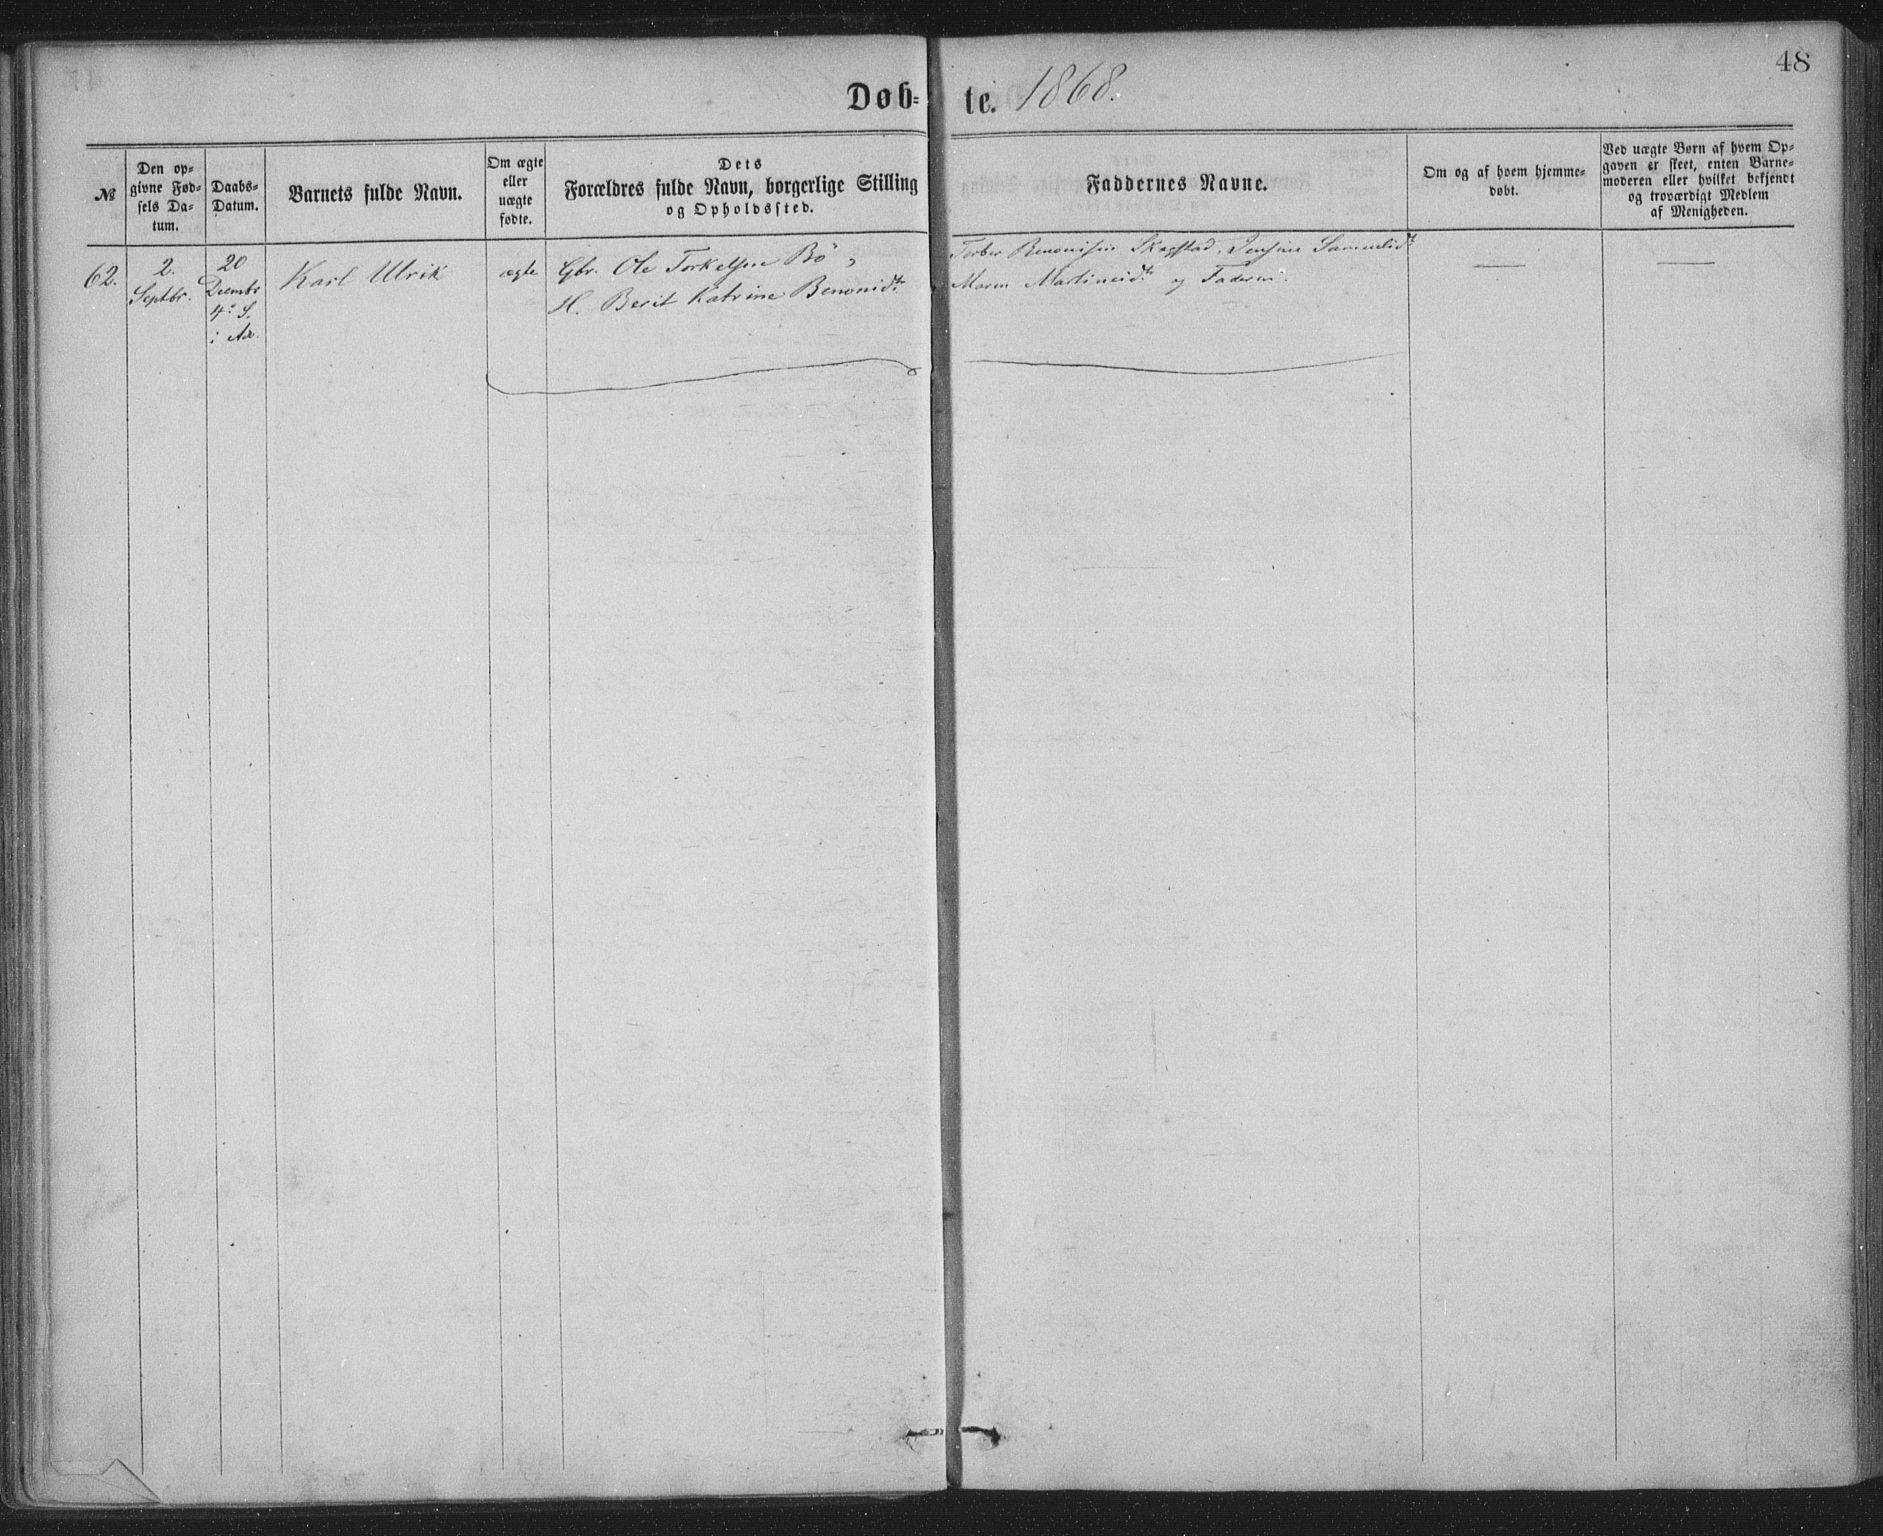 48
Døb= te. 1868.
№
Den op-
givne Fød-
sels Da-
tum.
Daabs-
Datum.
Barnets fulde Navn.
Om ægte
eller
uægte
fødte.
Dets
Forældres fulde Navn, borgerlige Stilling
og Opholdssted.
Faddernes Navne.
Om og af hvem hjemme-
døbt.
Ved uægte Børn af hvem Op-
gaven er skeet, enten Barne-
moderen eller hvilket bekjendt
og troværdigt Medlem
af Menigheden.
62.
2.
Septbr.
20
Decembr
4de S.
i Adv.
Karl Ulrik
ægte
Gbr. Ole Torkelsen Bö
H. Berit Katrine Benonidtr
Benonisen Skagstad, Jensine
Maren Martineidtr og Faderen.